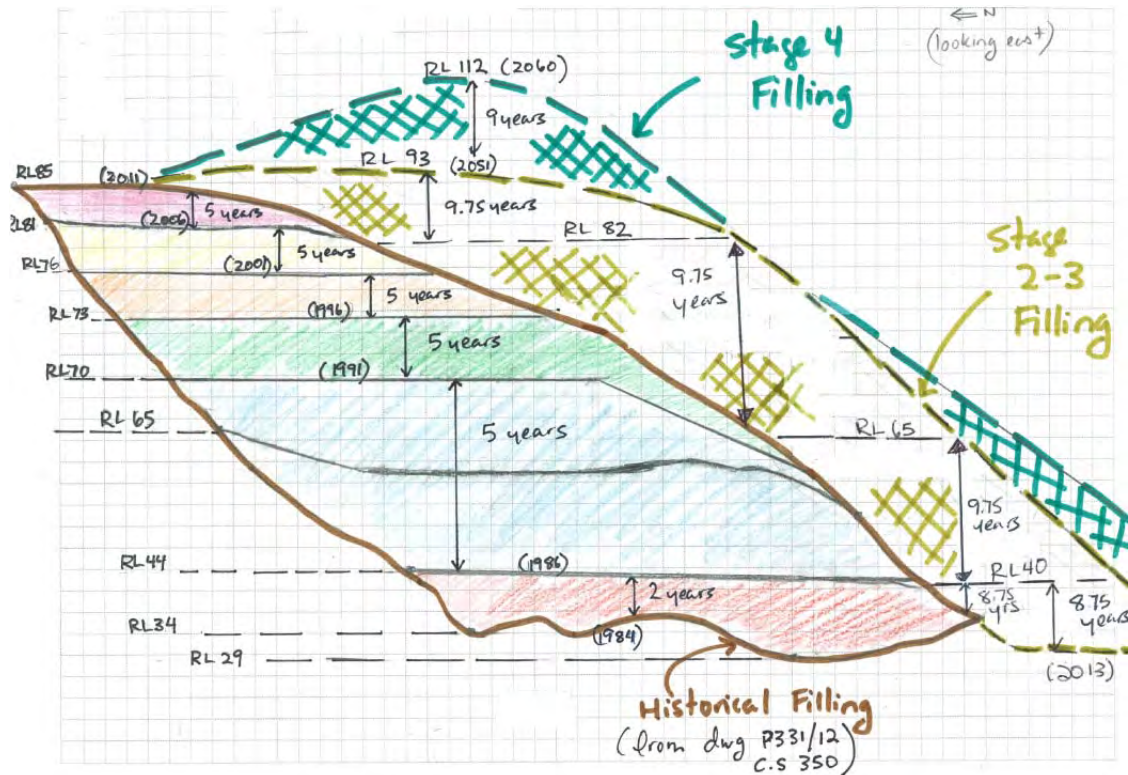 ← N
(looking east)
Stage 4
Filling
RL 112 (2060)
9 years
RL 93
(2051)
RL85
(2011)
5 years
9.75 years
RL81
(2006)
RL 82
5 years
Stage
2-3
Filling
RL76
(2001)
9.75
years
5 years
RL73
(1996)
5 years
RL70
(1991)
RL 65
5 years
RL 65
9.75
years
RL44
(1986)
RL40
2 years
8.75
yrs
8.75
years
RL34
(1984)
RL 29
(2013)
Historical Filling
(from dwg P331/12)
C.S 350